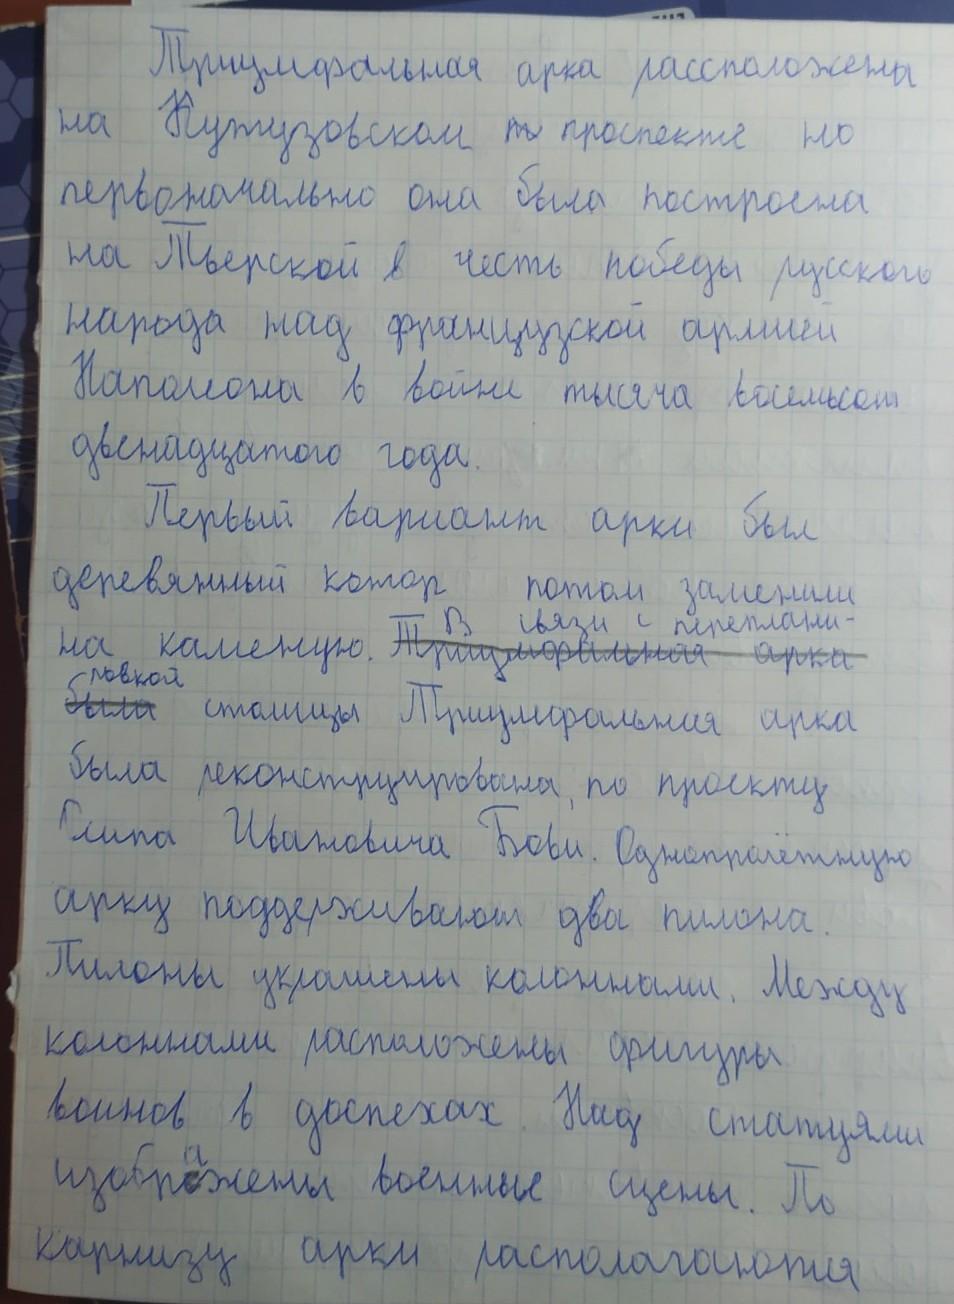 Триумфальная арка рассположена
на Кутузовском проспекте но
первоначально она была построена
на Тверской в честь победы русского
народа над французской армией
Наполеона в войне тысяча восемьсот
двенадцатого года.
Первый вариант арки был
деревянный котор потом заменили
В связи с переплани-
на каменую. Триумфальная арка
ровкой
была столицы Триумфальная арка
была реконструирована, по проекту
Ивановича Бови. Однопролётную
арку поддерживают два пилона.
Пилоны украшены колоннами. Между
колоннами расположены фигуры
воинов в доспехах Над статуями
изображены военные сцены. По
карнизу арки располагаются